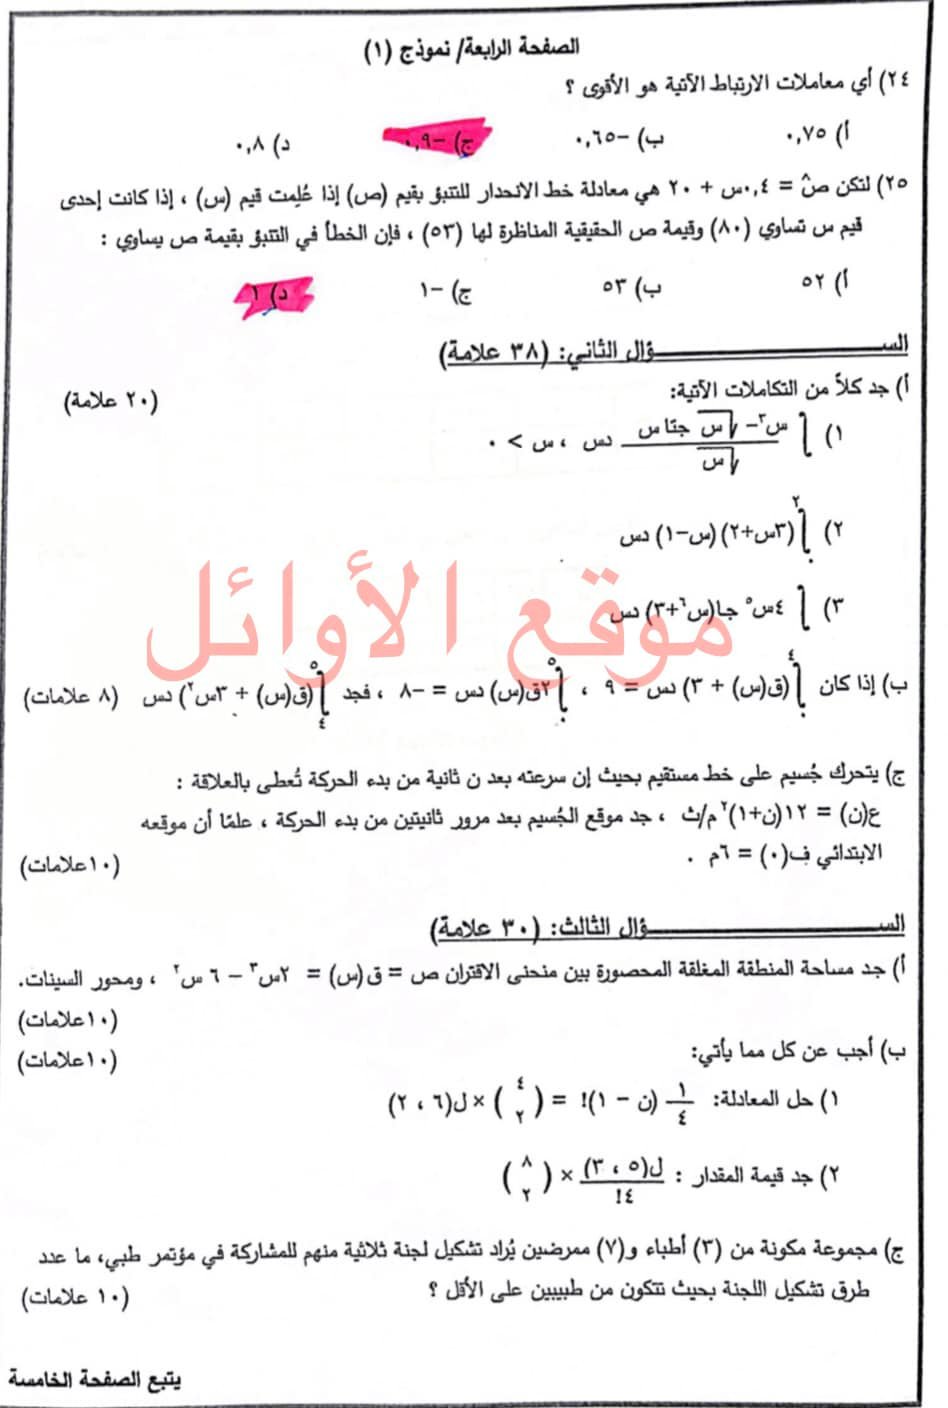 الصفحة الرابعة/ نموذج (١)
٢٤) أي معاملات الارتباط الآتية هو الأقوى ؟
أ) ٠,٧٥ ب) -٠,٦٥ ج) -٠,٩ د) ٠,٨
٢٥) لتكن صˆ = ٠,٤س + ٢٠ هي معادلة خط الانحدار للتنبؤ بقيم (ص) إذا عُلِمت قيم (س) ، إذا كانت إحدى
قيم س تساوي (٨٠) وقيمة ص الحقيقية المناظرة لها (٥٣) ، فإن الخطأ في التنبؤ بقيمة ص يساوي :
أ) ٥٢ ب) ٥٣ ج) -١ د) ١
الســــــــــــــؤال الثاني: (٣٨ علامة)
أ) جد كلاً من التكاملات الآتية: (٢٠ علامة)
١) ∫ (س^-٣ - √س جتا س) / √س دس ، س > ٠
٢) ∫٠^٢ (٣س+٢)(س-١) دس
٣) ∫ ٤س^٥ جا(س^٦+٣) دس
موقع الأوائل
ب) إذا كان ∫٠^٤ (ق(س) + ٣) دس = ٩ ، ∫٠^٥ ٢ق(س) دس = -٨ ، فجد ∫٤^٥ (ق(س) + ٣س^٢) دس (٨ علامات)
ج) يتحرك جُسيم على خط مستقيم بحيث إن سرعته بعد ن ثانية من بدء الحركة تُعطى بالعلاقة :
ع(ن) = ١٢(ن+١)^٢ م/ث ، جد موقع الجُسيم بعد مرور ثانيتين من بدء الحركة ، علمًا أن موقعه
الابتدائي ف(٠) = ٦م . (١٠علامات)
الســــــــــــــؤال الثالث: (٣٠ علامة)
أ) جد مساحة المنطقة المغلقة المحصورة بين منحنى الاقتران ص = ق(س) = ٢س^٣ - ٦ س^٢ ، ومحور السينات.
(١٠علامات)
ب) أجب عن كل مما يأتي: (١٠علامات)
١) حل المعادلة: ١/٤ (ن - ١)! = (٤ ٢) × ل(٦ ، ٢)
٢) جد قيمة المقدار : ل(٥ ، ٣) / ٤! × (٨ ٢)
ج) مجموعة مكونة من (٣) أطباء و(٧) ممرضين يُراد تشكيل لجنة ثلاثية منهم للمشاركة في مؤتمر طبي، ما عدد
طرق تشكيل اللجنة بحيث تتكون من طبيبين على الأقل ؟ (١٠ علامات)
يتبع الصفحة الخامسة